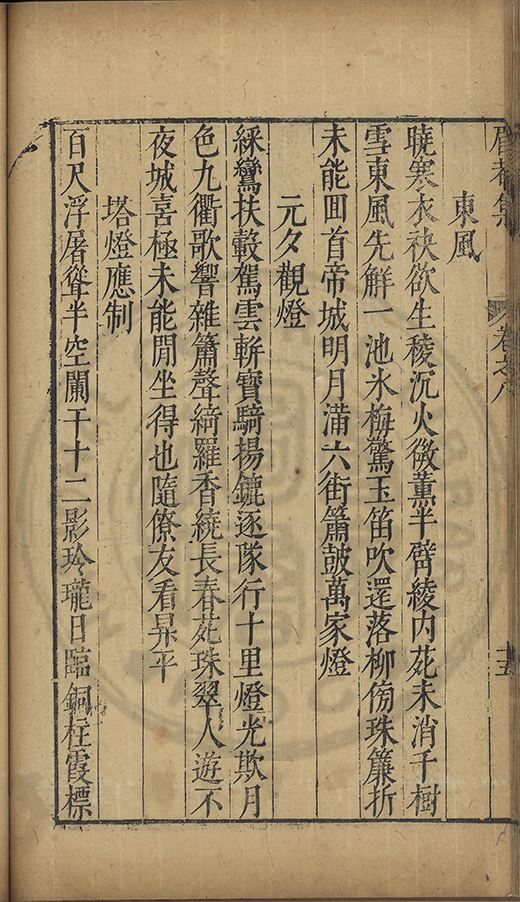 卷之八 十五
東風
曉寒衣袂欲生稜沉火微薰半臂綾內苑未消千樹
雪東風先解一池氷梅驚玉笛吹還落柳傍珠簾折
未能囬首帝城明月滿六街簫鼓萬家燈
元夕觀燈
綵鸞扶轂駕雲軿寶騎揚鑣逐隊行十里燈光欺月
色九衢歌響雜簫聲綺羅香繞長春苑珠翠人遊不
夜城喜極未能閒坐得也隨僚友看昇平
塔燈應制
百尺浮屠聳半空闌干十二影玲瓏日臨銅柱霞標